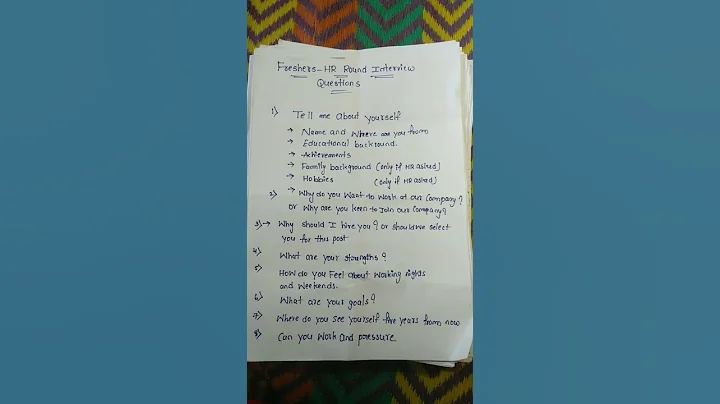 Freshers - HR Round Interview
Questions
1) Tell me about yourself
→ Name and Where are you from
→ Educational backround.
→ Achievements
→ Family background (only if HR asked)
→ Hobbies (only if HR asked)
2) → Why do you Want to Work at our Company?
or Why are you keen to Join our Company?
3) → Why should I hire you? or should we select
you for this post
4) What are your strengths?
5) How do you Feel about Working nights
and Weekends.
6) What are your goals?
7) Where do you see yourself five years from now
8) Can you Work And pressure.